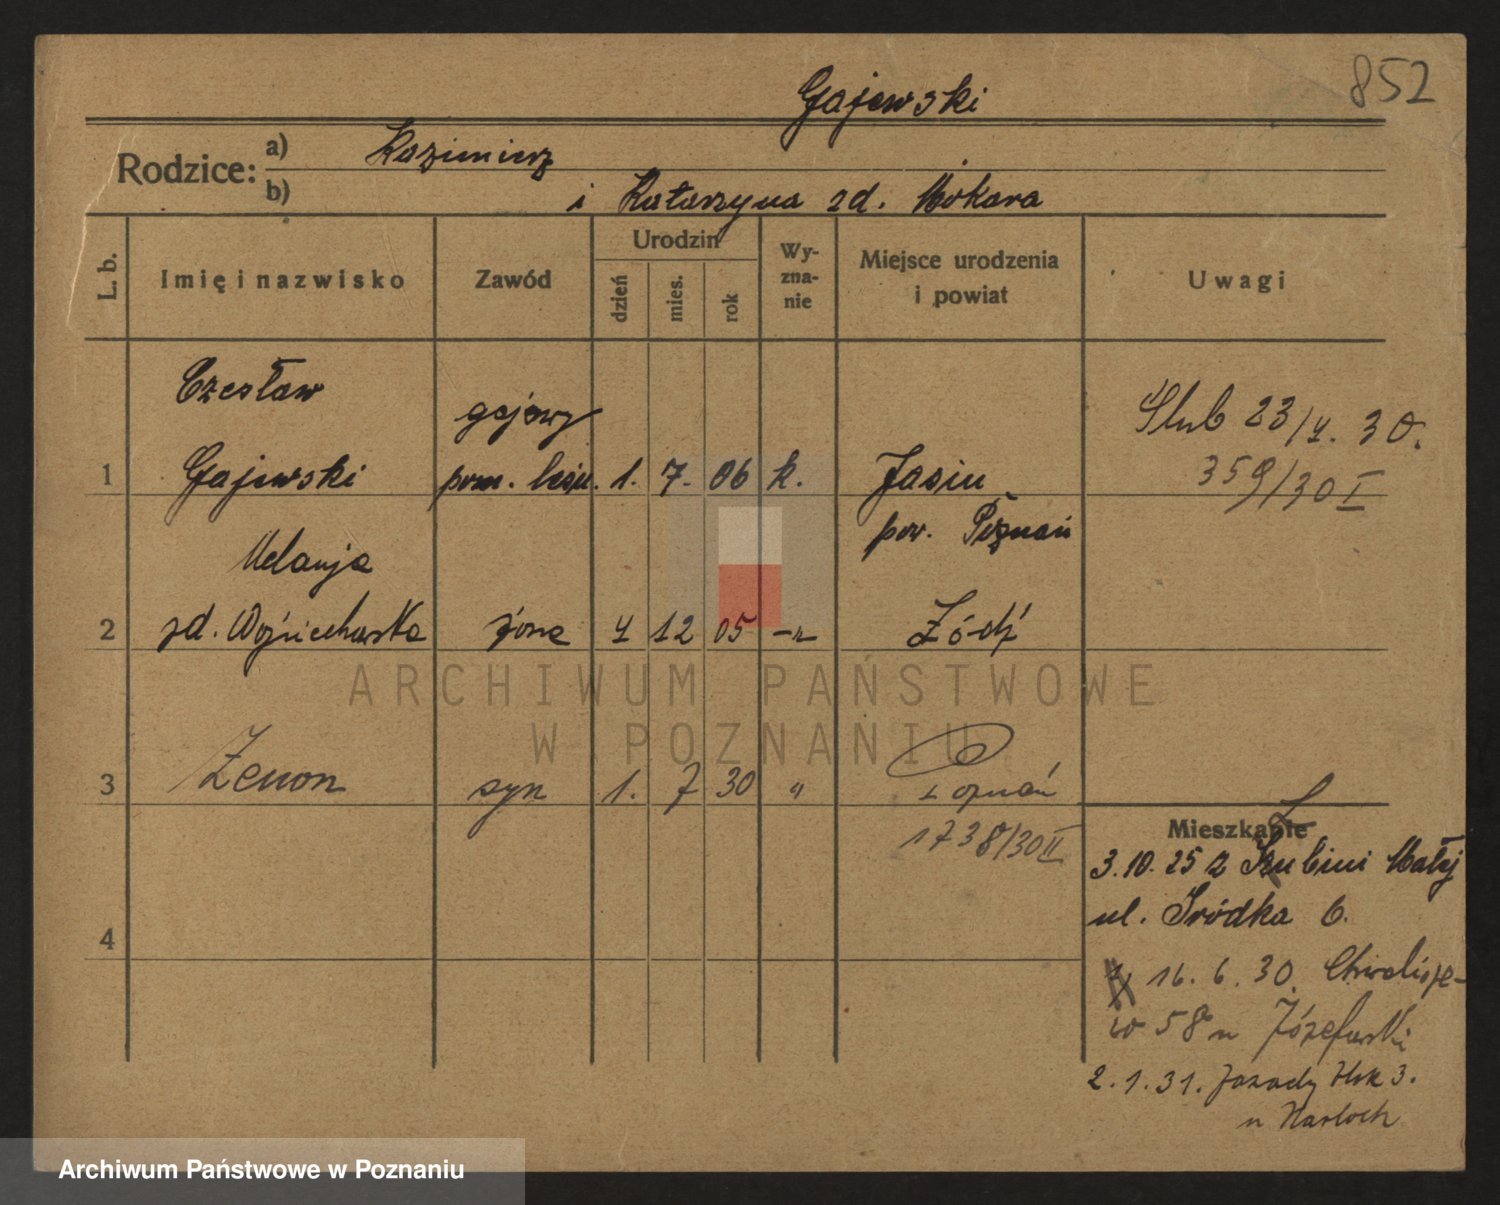 852
Gajewski
Rodzice:
a) Kazimierz
b) i Katarzyna zd. Mokara
L. b.
Imię i nazwisko
Zawód
Urodzin
dzień
mies.
rok
Wy-
zna-
nie
Miejsce urodzenia
i powiat
Uwagi
Czesław
gajowy
Ślub 23/4. 30.
1 Gajewski pom. 1. 7. 06 k. Jasin
359/30 I
pow. Poznań
Melanja
2 zd. Wojciechowska żona 4 12 05 Łódź
3 Zenon syn 1. 7 30 " Poznań
1738/30 II
4
Mieszkanie
3.10.25 z Małej
ul. Śródka 6.
16. 6. 30. Chwalisze-
wo 58 u Józefowski
2. 1. 31. 3.
u Harloch
ARCHIWUM PAŃSTWOWE
W POZNANIU
Archiwum Państwowe w Poznaniu